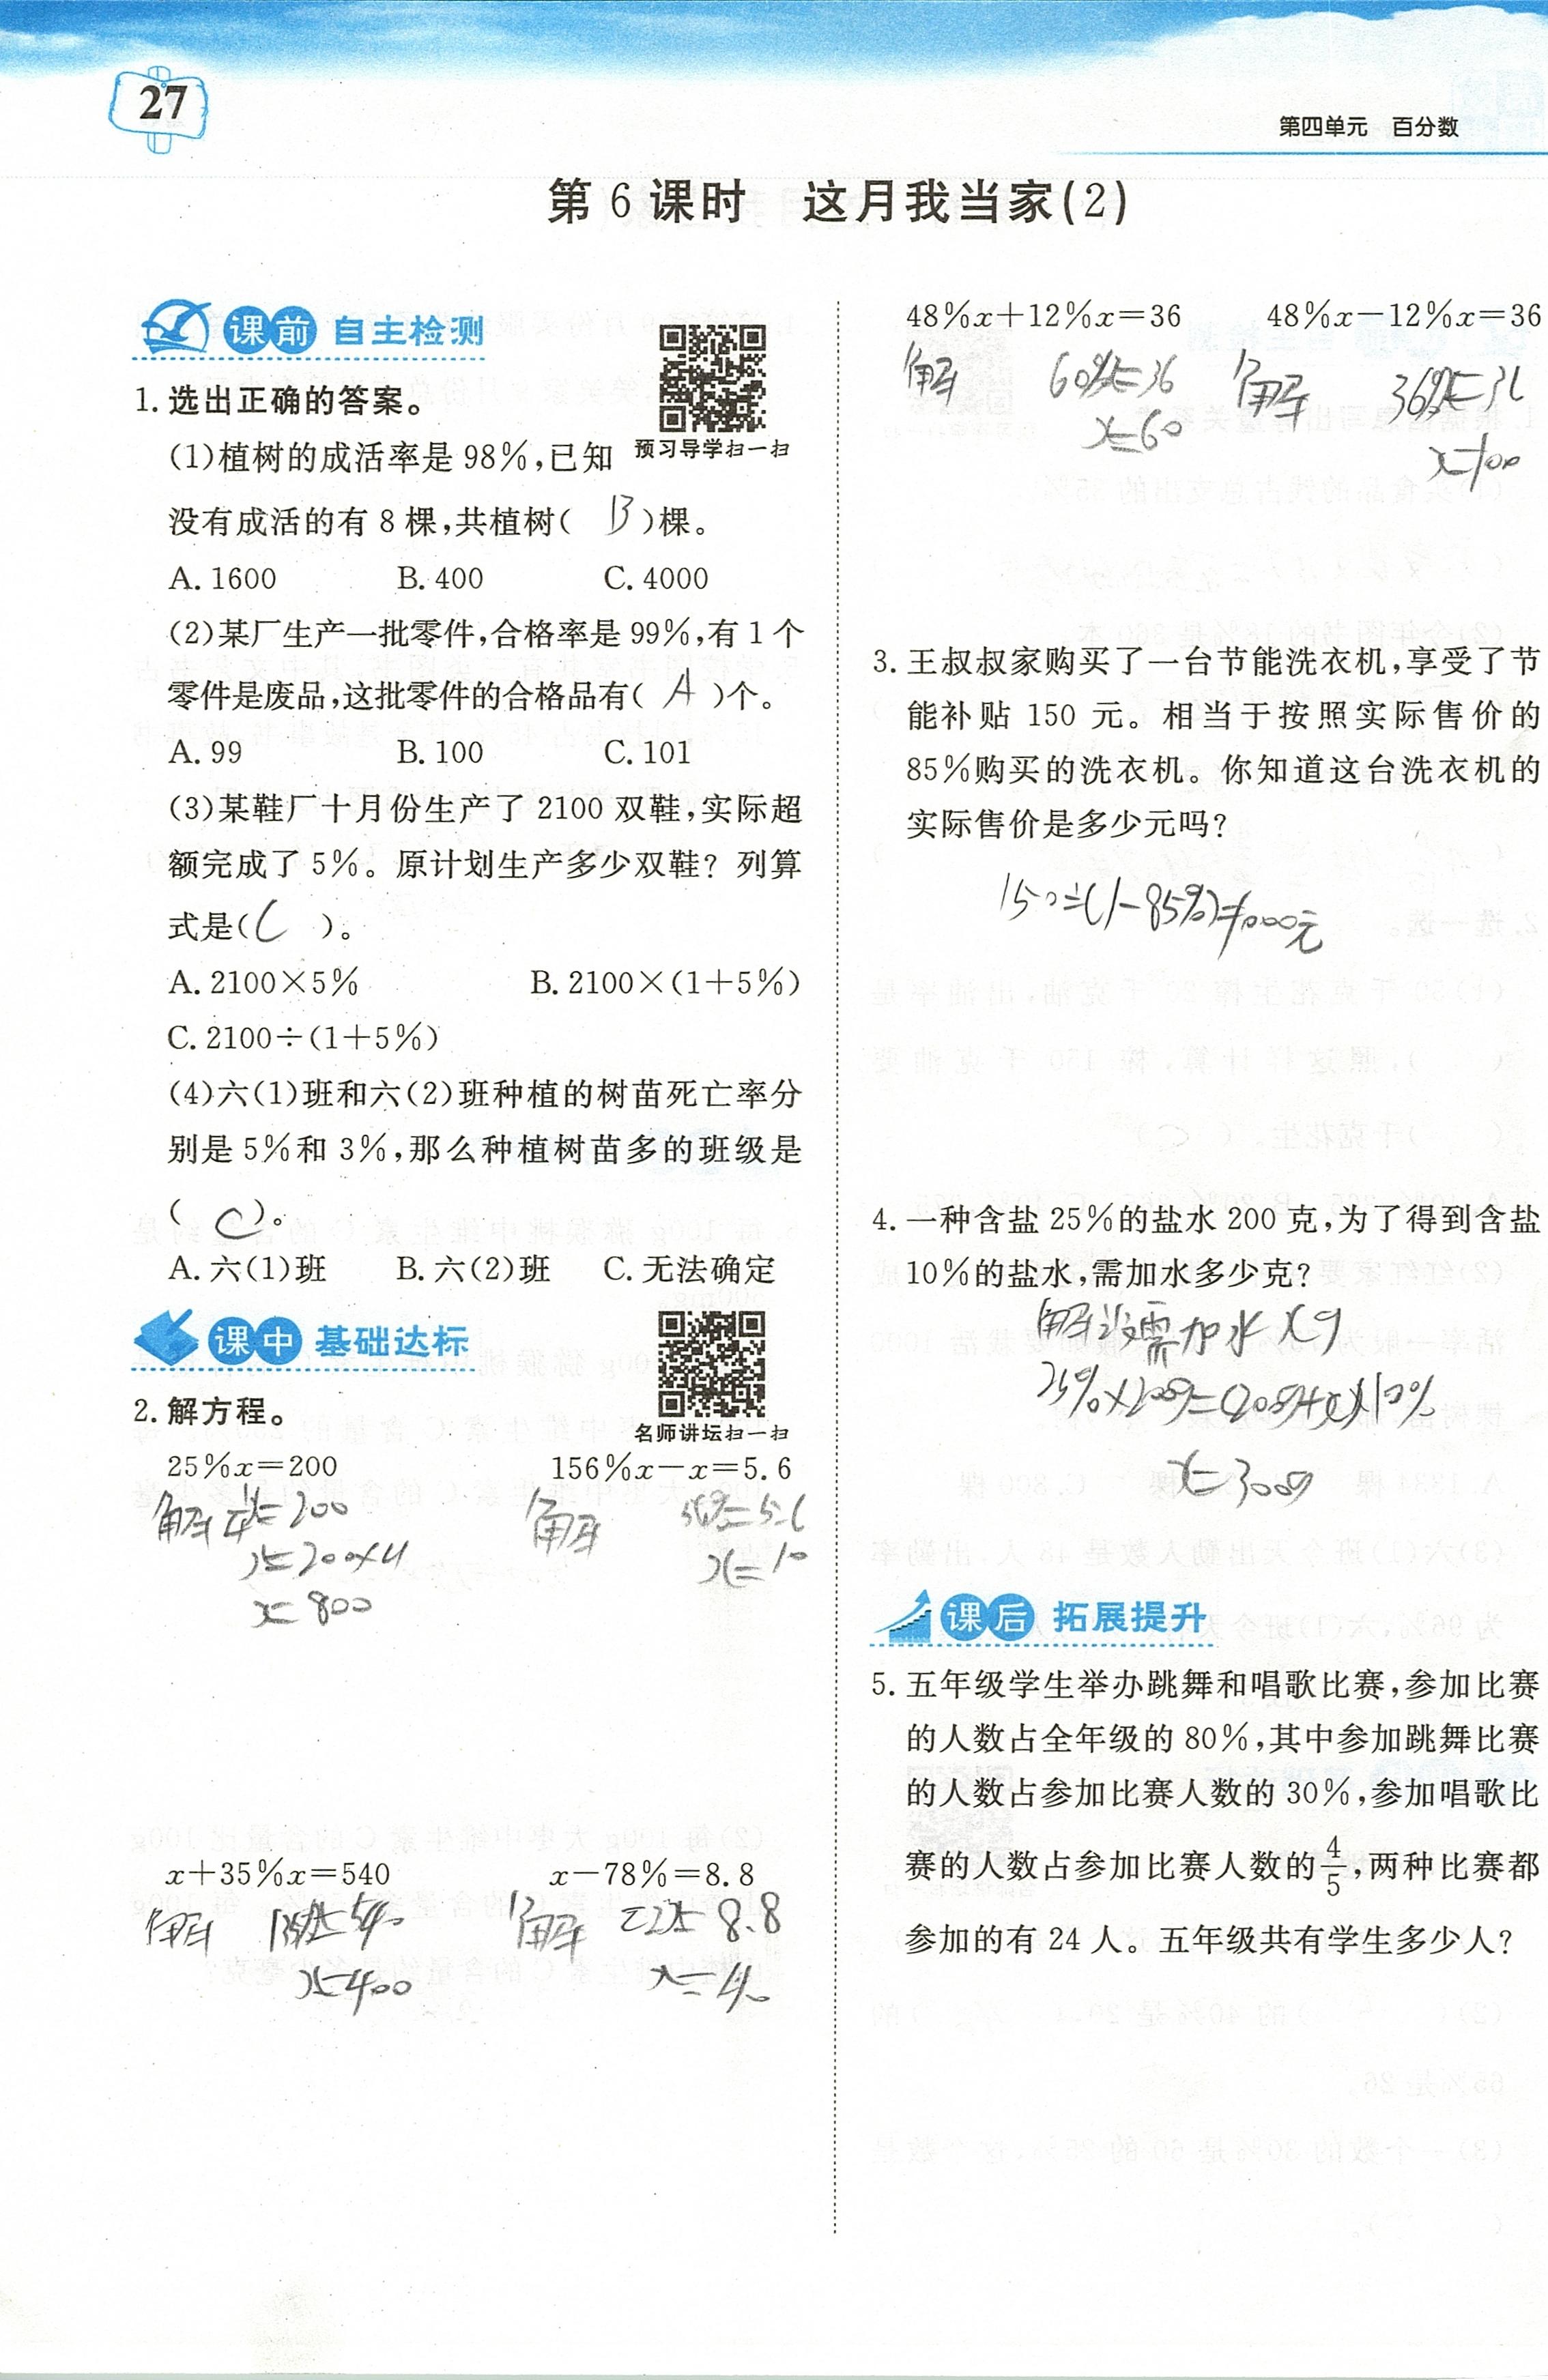 27
第四单元 百分数
第 6 课时 这月我当家(2)
课前 自主检测
预习导学扫一扫
1. 选出正确的答案。
(1)植树的成活率是 98%,已知
没有成活的有 8 棵,共植树( B )棵。
A. 1600 B. 400 C. 4000
(2)某厂生产一批零件,合格率是 99%,有 1 个
零件是废品,这批零件的合格品有( A )个。
A. 99 B. 100 C. 101
(3)某鞋厂十月份生产了 2100 双鞋,实际超
额完成了 5%。原计划生产多少双鞋? 列算
式是( C )。
A. 2100×5% B. 2100×(1+5%)
C. 2100÷(1+5%)
(4)六(1)班和六(2)班种植的树苗死亡率分
别是 5%和 3%,那么种植树苗多的班级是
( C )。
A. 六(1)班 B. 六(2)班 C. 无法确定
课中 基础达标
名师讲坛扫一扫
2. 解方程。
25%x=200 156%x-x=5.6
解 x=200 解
x=200×4 x=10
x=800
x+35%x=540 x-78%=8.8
解 解 8.8
x=400 x=40
48%x+12%x=36 48%x-12%x=36
解 60%x=36 解
x=60 x=100
3. 王叔叔家购买了一台节能洗衣机,享受了节
能补贴 150 元。相当于按照实际售价的
85%购买的洗衣机。你知道这台洗衣机的
实际售价是多少元吗?
150÷(1-85%)=1000元
4. 一种含盐 25%的盐水 200 克,为了得到含盐
10%的盐水,需加水多少克?
解设需加水 xg
25%×200g=(200g+x)×10%
x=300g
课后 拓展提升
5. 五年级学生举办跳舞和唱歌比赛,参加比赛
的人数占全年级的 80%,其中参加跳舞比赛
的人数占参加比赛人数的 30%,参加唱歌比
赛的人数占参加比赛人数的4/5,两种比赛都
参加的有 24 人。五年级共有学生多少人?